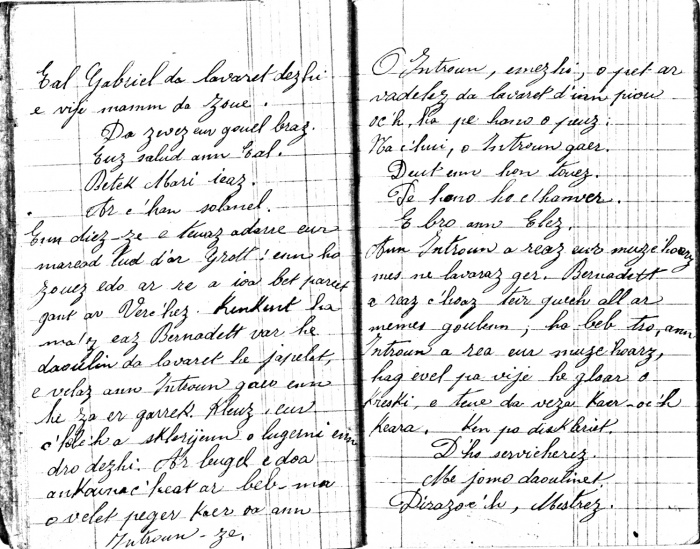 Eal Gabriel da lavaret dezhi
e vije mamm da Zoue.
Da zevez eur gouel braz.
Euz salud ann Eal.
Betek Mari ieaz.
Ar c'han solanel.
Enn diez-ze e teuaz adarre eur
maread tud d'ar Grott: enn ho
zouez edo ar re a ioa bet pareet
gant ar Verc'hez. Kenkent ha
ma'z eaz Bernadett var he
daoulin da lavaret he japelet,
e velaz ann Introun gaer enn
he za er garrek. Kleuz, eur
sklerijenn o lugerni enn
dro dezhi. Ar bugel e doa
ankounac'heat ar beb-ma
o velet peger kaer oa ann
Introun-ze.
O Introun, emezhi, o pet ar
vadelez da lavaret d'inn piou
oc'h, ha pe hano o peuz:
Na c'hui, o Introun gaer.
Deut enn hon touez.
Pe hano ho c'hanver.
E bro ann Elez.
Ann Introun a reaz eur muzc'hoarz
mes ne lavaraz ger. Bernadett
a reaz c'hoaz teir guech all ar
memes goulenn; ha beb tro, ann
Introun a rea eur muzc'hoarz,
hag evel pa vije he gloar o
kreski, e teue da veza kaer-oc'h
keara. Ken po diskleriet.
D'ho servicherez.
Me jomo daoulinet.
Dirazoc'h, Mestrez.